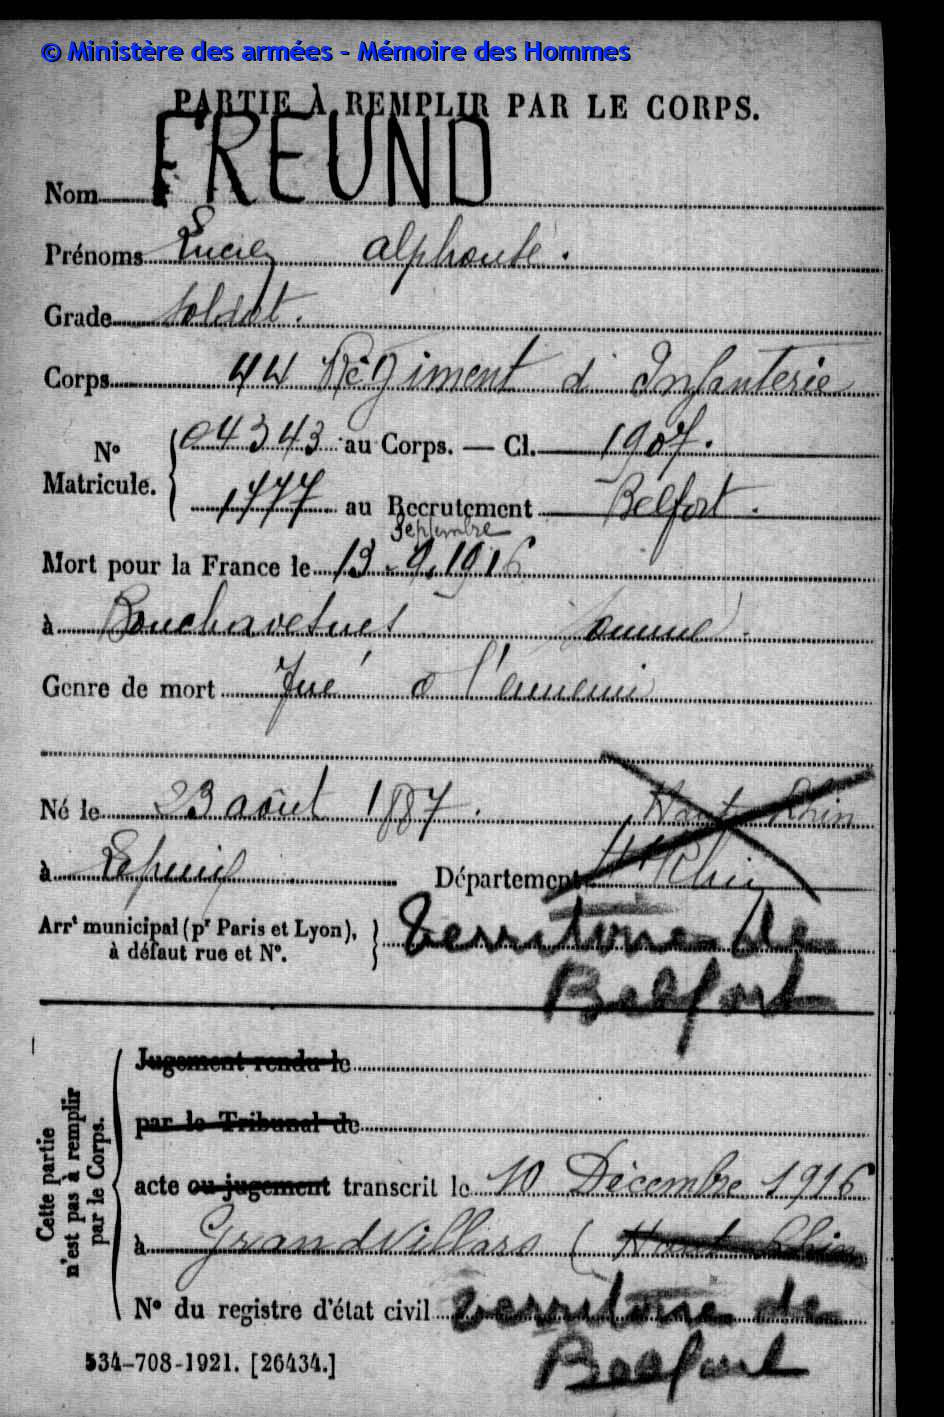 © Ministère des armées - Mémoire des Hommes
PARTIE À REMPLIR PAR LE CORPS.
Nom FREUND
Prénoms Lucien alphonse.
Grade Soldat.
Corps 44 Régiment d'Infanterie
N° Matricule. 04343 au Corps. — Cl. 1907.
1777 au Recrutement Belfort.
Septembre
Mort pour la France le 13.9.1916
à Bouchavesnes Somme.
Genre de mort Tué à l'ennemi
Né le 23 août 1887. Haut Rhin
à Lepuix Département Ht Rhin
Arrt municipal (pr Paris et Lyon), à défaut rue et N°. Territoire de
Belfort
Cette partie n'est pas à remplir par le Corps.
Jugement rendu le
par le Tribunal de
acte ou jugement transcrit le 10 Décembre 1916
à Grandvillars (Haut Rhin
N° du registre d'état civil Territoire de
Belfort
534-708-1921. [26434.]